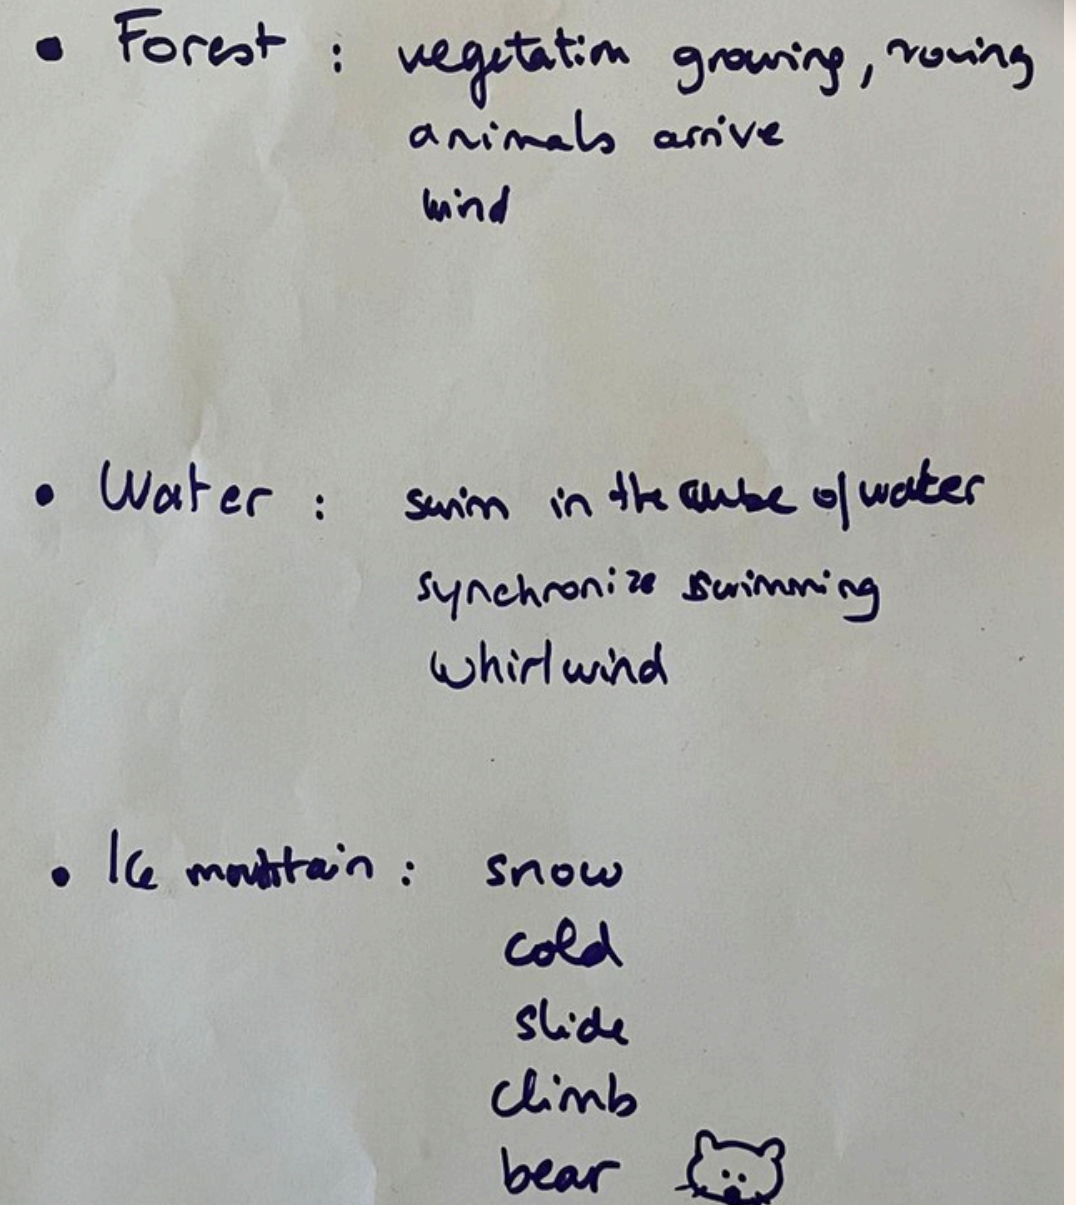 • Forest : vegetation growing, moving
animals arrive
wind
• Water : swim in the cube of water
synchronize swimming
whirlwind
• Ice mountain : snow
cold
slide
climb
bear